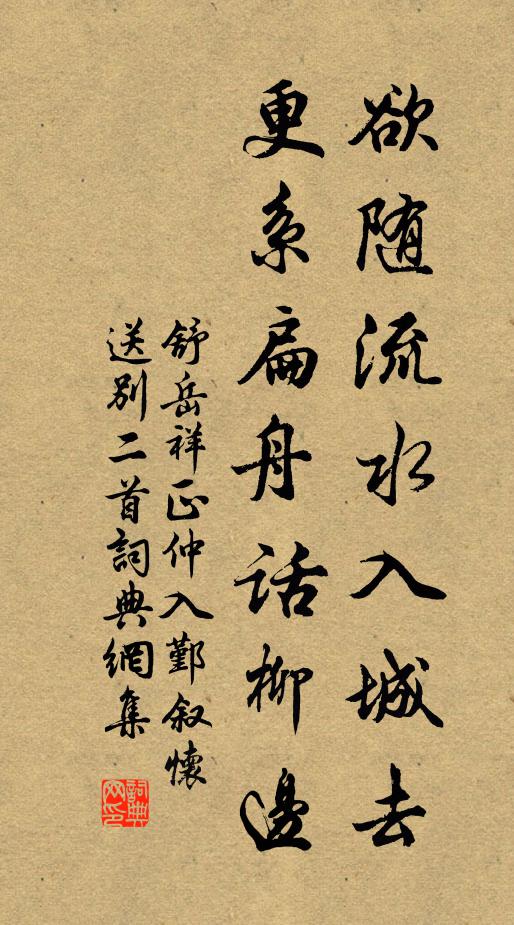 欲随流水入城去
更系扁舟话柳邊
舒岳祥正仲入鄞叙懷
送別二首詞典網集
詞典
网印